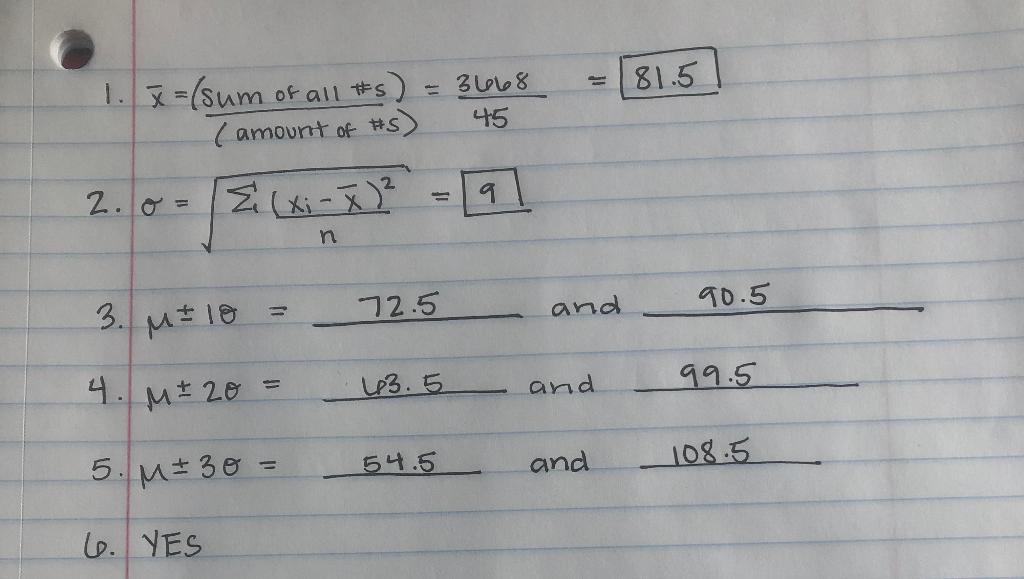 1. x̄ = (sum of all #s) / (amount of #s) = 3668 / 45 = 81.5
2. σ = √(Σ (xi - x̄)² / n) = 9
3. μ ± 1σ = 72.5 and 90.5
4. μ ± 2σ = 63.5 and 99.5
5. μ ± 3σ = 54.5 and 108.5
6. YES